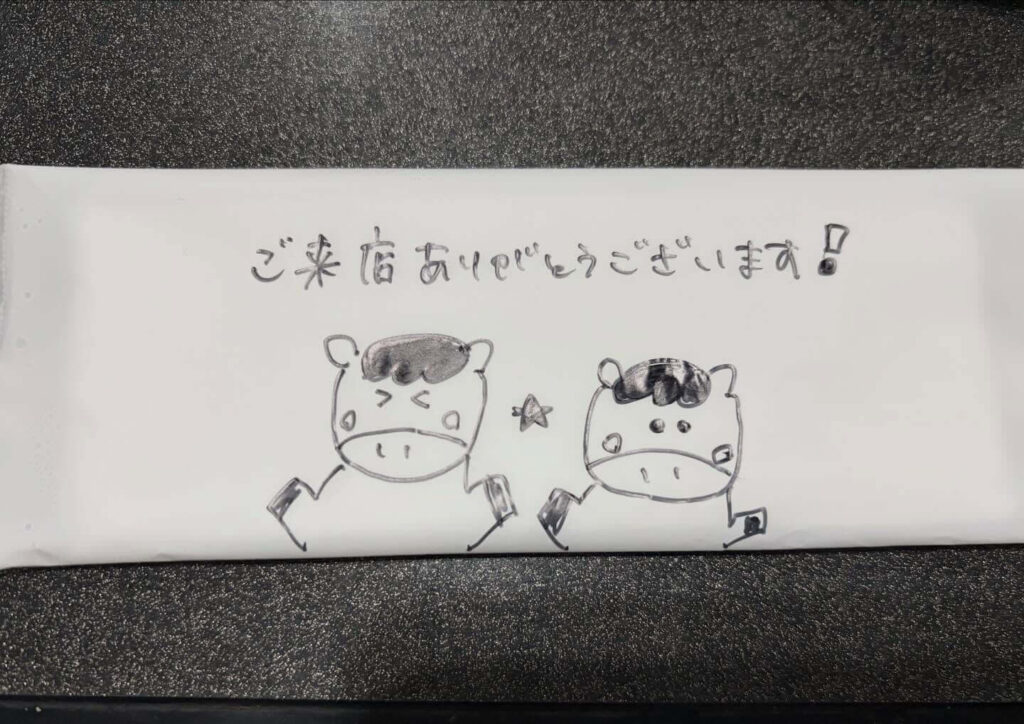 ご来店ありがとうございます!